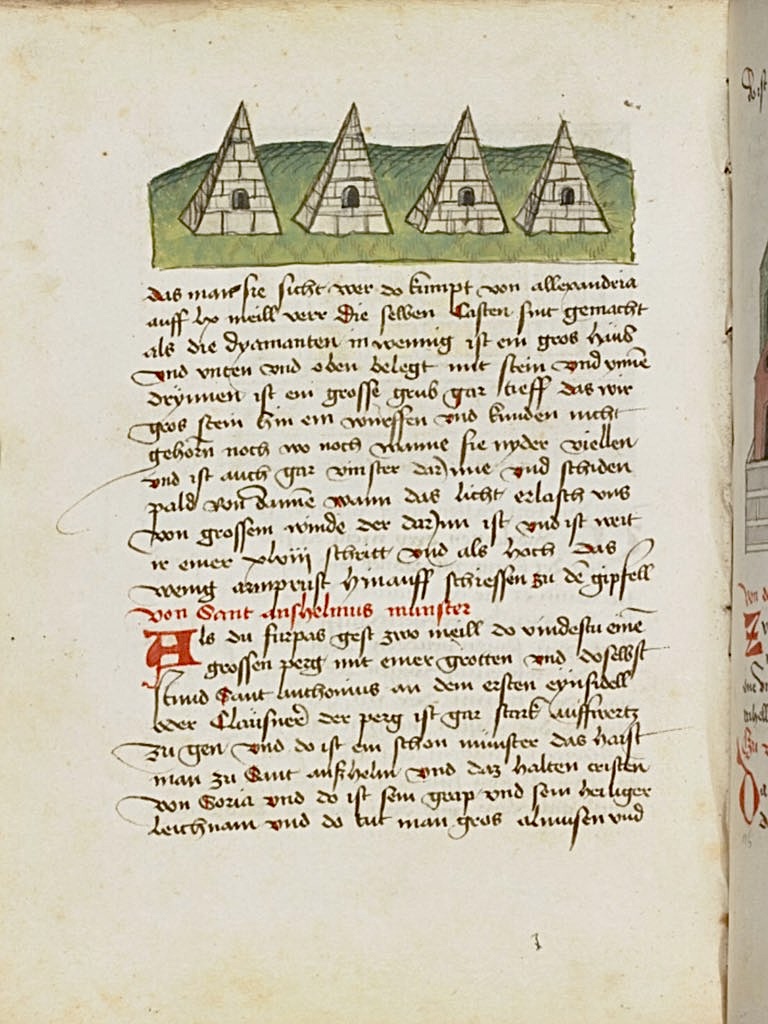 das man sie sicht wer do kumpt von allexandria
auff lx meill verr Die selben Casten sint gemacht
als die dyamanten inwennig ist ein gros
vnd vnten vnd oben belegt mit stein vnd
drynnen ist ein grosse grub gar tieff das wir
gros stein hin ein wurffen vnd kunden nicht
gehorn noch wo noch wanne sie nyder viellen
vnd ist auch gar vinster darjnne vnd schiden
pald von danne wann das licht erlasch vns
von grossem winde der darjnn ist vnd ist weit
ir einer xlviij schritt vnd als hoch das
wenig armprust hinauff schiessen zu dē gipfell
von Sant anshelmus munster
Als du furpas gest zwo meill do vindestu einē
grossen perg mit einer grotten vnd doselbst
stund Sant anthonius an dem ersten eynsidell
oder Clausner der perg ist gar starck auffwertz
zu gen vnd do ist ein schon munster das heist
man zu Sant anshelm vnd daz halten cristen
von Soria vnd do ist sein grap vnd sein heiliger
leichnam vnd do tut man gros almusen vnd